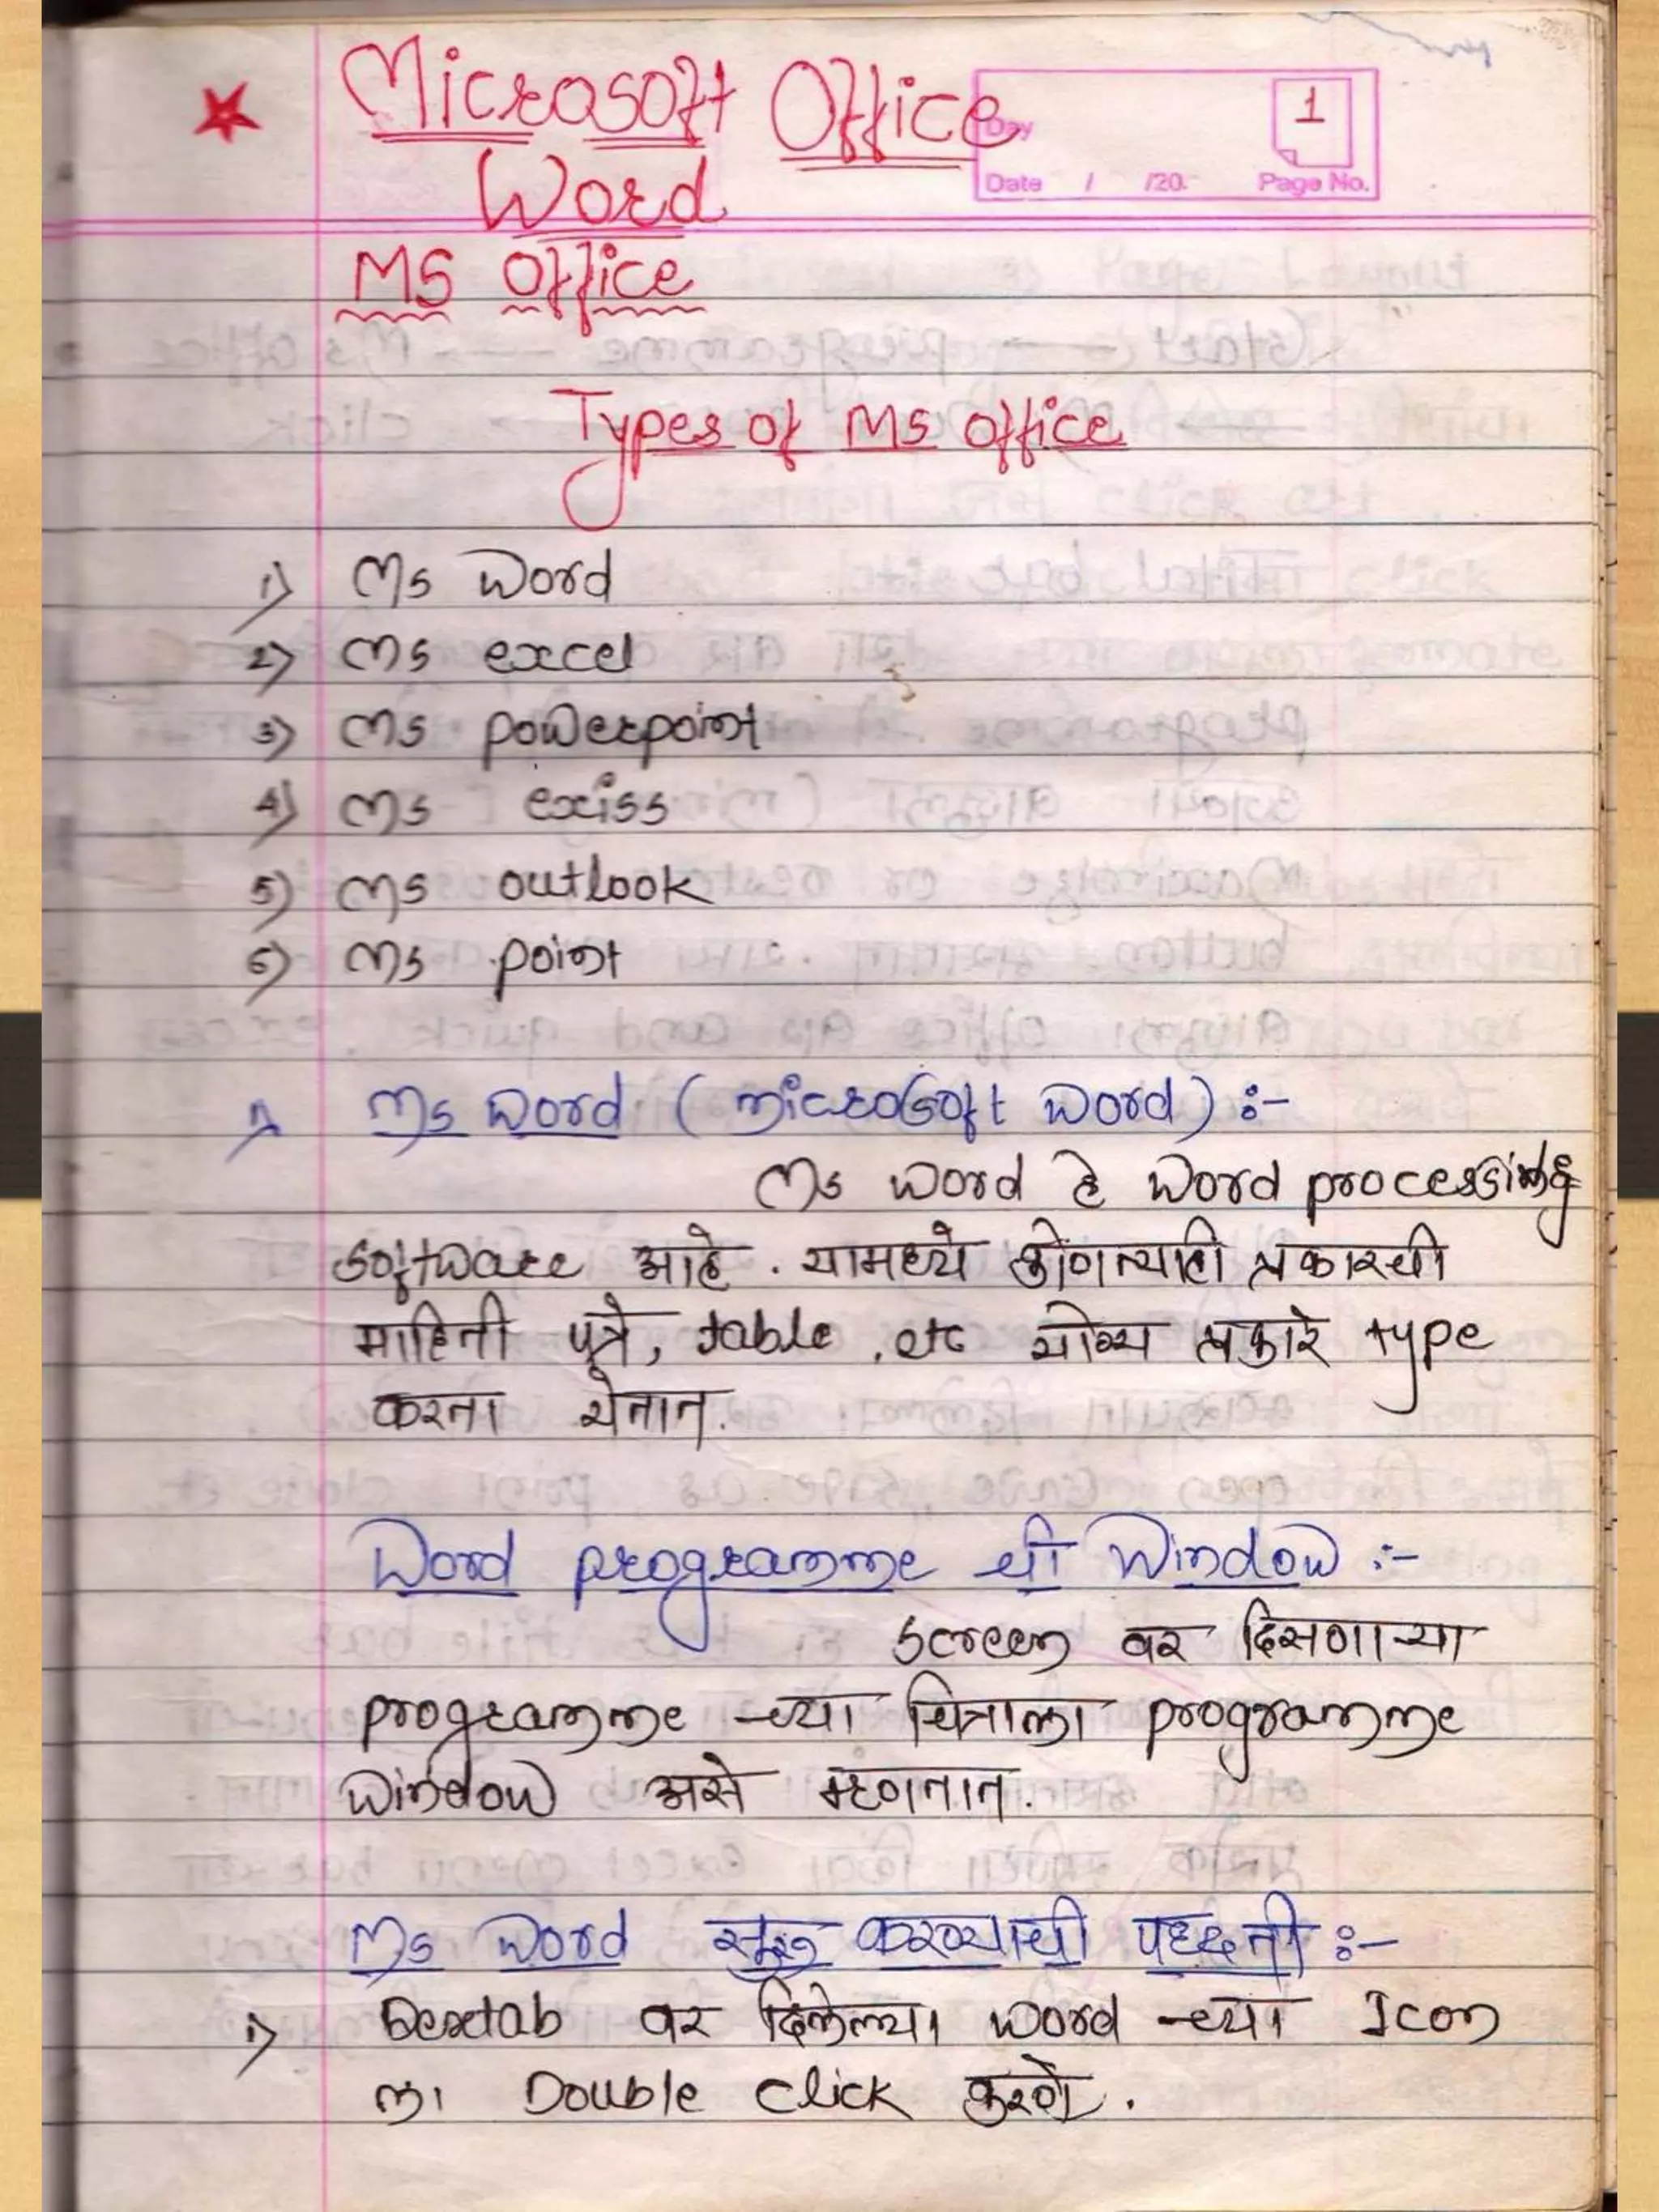 Microsoft Office
Word
Day
1
Date / /20.
Page No.
MS Office
Types of MS office
1) Ms Word
2) Ms excel
3) Ms powerpoint
4) Ms exciss
5) Ms outlook
6) Ms point
1) Ms Word ( MicroSoft Word ) :-
Ms Word हे Word processing
software आहे . यामध्ये कोणत्याही प्रकारची
माहिती पत्रे, table , etc योग्य प्रकारे type
करता येतात.
Word programme ची Window :-
Screen वर दिसणाऱ्या
programme च्या चित्राला programme
Window असे म्हणतात.
Ms Word सुरू करण्याची पध्दती :-
1) Dextab वर दिलेल्या Word च्या Icon
ला Double Click करणे.